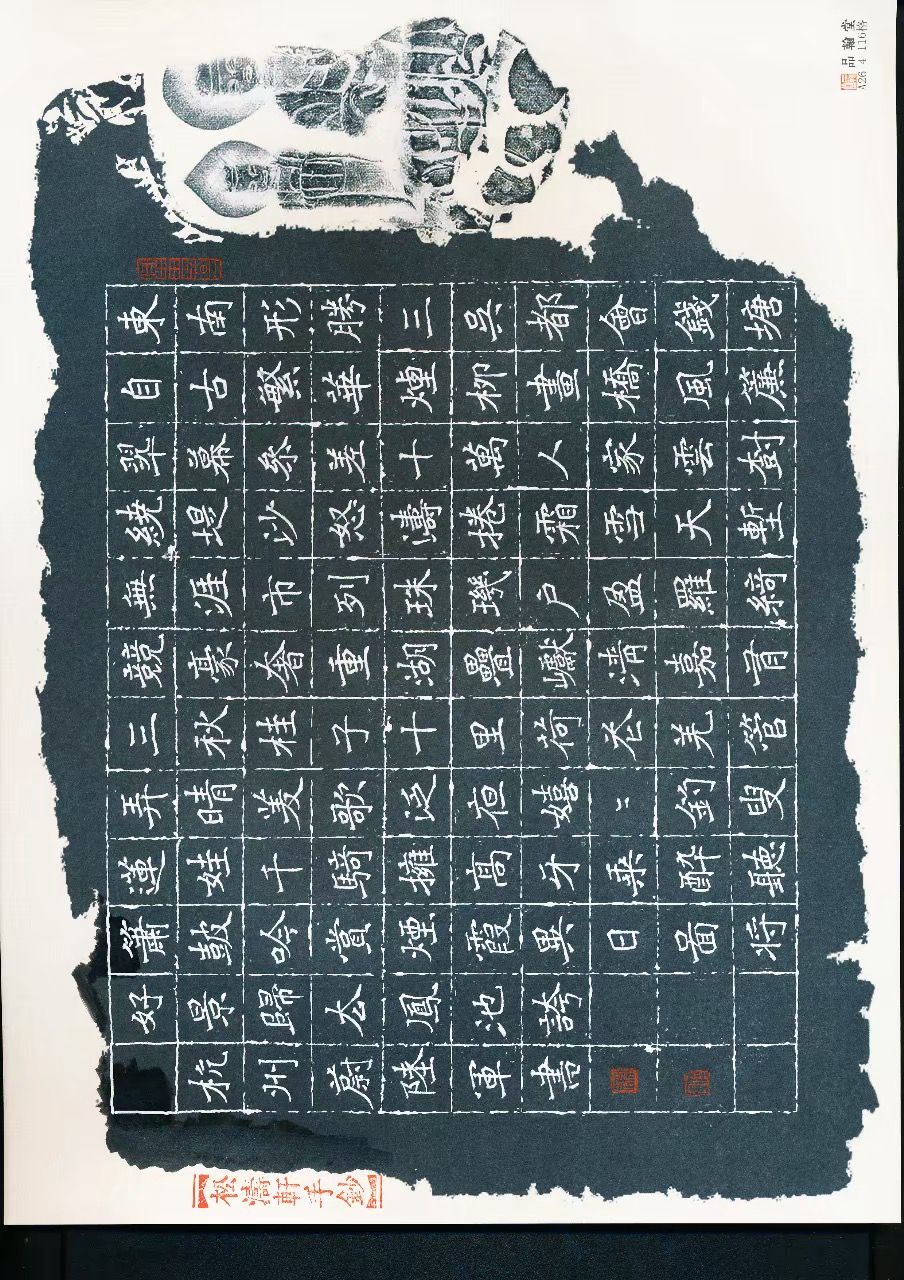 東南形勝三吳都會錢塘
自古繁華煙柳畫橋風簾
翠幕參差十萬人家雲樹
繞堤沙怒濤捲霜雪天塹
無涯市列珠璣戶盈羅綺
競豪奢重湖疊巘清嘉有
三秋桂子十里荷花羌管
弄晴菱歌泛夜嬉〻釣叟
蓮娃千騎擁高牙乘醉聽
簫鼓吟賞煙霞異日圖將
好景歸去鳳池誇
杭州蔚陸軍書
松濤軒手鈔
品翰堂
A26 4 116格